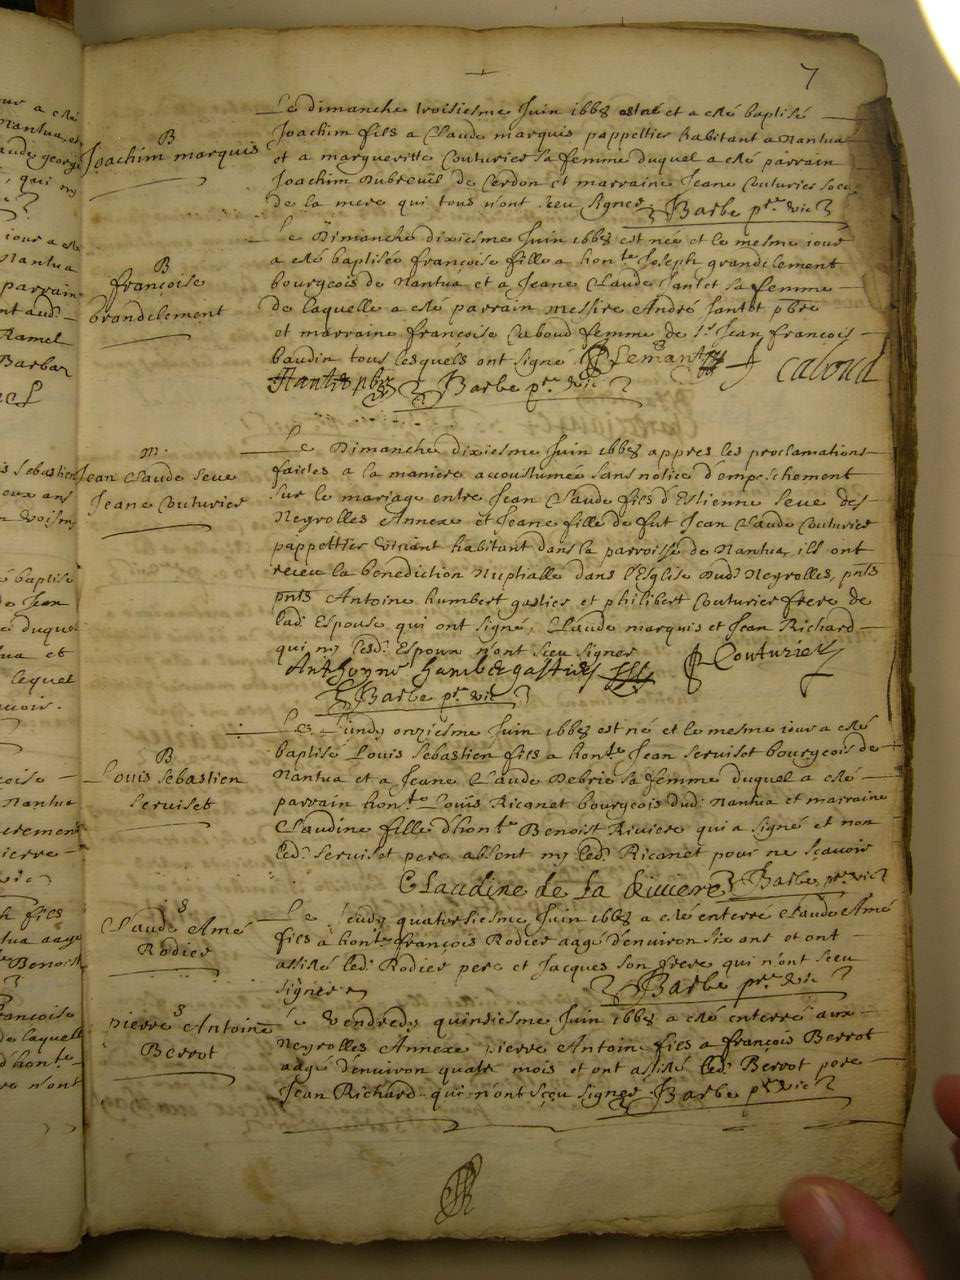 7
B
Joachim marquis
Le dimanche troisiesme Juin 1668 est né et a esté baptisé
Joachim fils a Claude marquis pappettier habitant a Nantua
et a margueritte Couturier sa femme duquel a esté parrain
Joachim Dubreuil de Cerdon et marraine Jeane Couturier soeur
de la mere qui tous n'ont sceu signer Barbe ptre vic
B
françoise
Grandclement
Le Dimanche dixiesme Juin 1668 est née et le mesme iour
a esté baptisée françoise fille a honte Joseph grandclement
bourgeois de Nantua et a Jeane Claude Jantet sa femme
de laquelle a esté parrain messire André Jantet pbre
et marraine françoise Caboud femme de Sr Jean françois
baudin tous lesquels ont signé
F Caboud
Barbe ptre vic
m.
Jean Claude Seve
Jeane Couturier
Le Dimanche dixiesme Juin 1668 appres les proclamations
faictes a la maniere accoustumée sans notice d'empeschement
sur le mariage entre Jean Claude fils d'Estienne Seve des
Neyrolles Annexe et Jeane fille de fut Jean Claude Couturier
pappettier vivant habitant dans la parroisse de Nantua, ils ont
receu la benediction Nuptialle dans l'Esglise dud. Neyrolles, pnts
pnts Antoine humbert gastier et philibert Couturier frere de
lad. Espouse qui ont signé, Claude marquis et Jean Richard
qui ny lesd. Espoux n'ont sceu signer
Anthoyne humbe gastier
P Couturier
Barbe ptre vic
B
Louis Sebastien
Serviset
Le Lundy onziesme Juin 1668 est né et le mesme iour a esté
baptisé Louis Sebastien fils a honte Jean Serviset bourgeois de
Nantua et a Jeane Claude Debrie sa femme duquel a esté
parrain honte Louis Ricanet bourgeois dud. Nantua et marraine
Claudine fille d'honte Benoist Riviere qui a signé et non
led. Serviset pere absent ny led. Ricanet pour ne scavoir
Claudine de la Riviere Barbe ptre vic
S
Claude Amé
Rodier
Le Jeudy quatorsiesme Juin 1668 a esté enterré Claude Amé
fils a honte françois Rodier aagé d'environ six ans et ont
assisté led. Rodier pere et Jacques son frere qui n'ont sceu
signer
Barbe ptre vic
S
pierre Antoine
Berrot
Le Vendredy quinsiesme Juin 1668 a esté enterré aux
Neyrolles Annexe pierre Antoine fils a françois Berrot
aagé d'environ quatre mois et ont assisté led. Berrot pere
Jean Richard qui n'ont sceu signer Barbe ptre vic